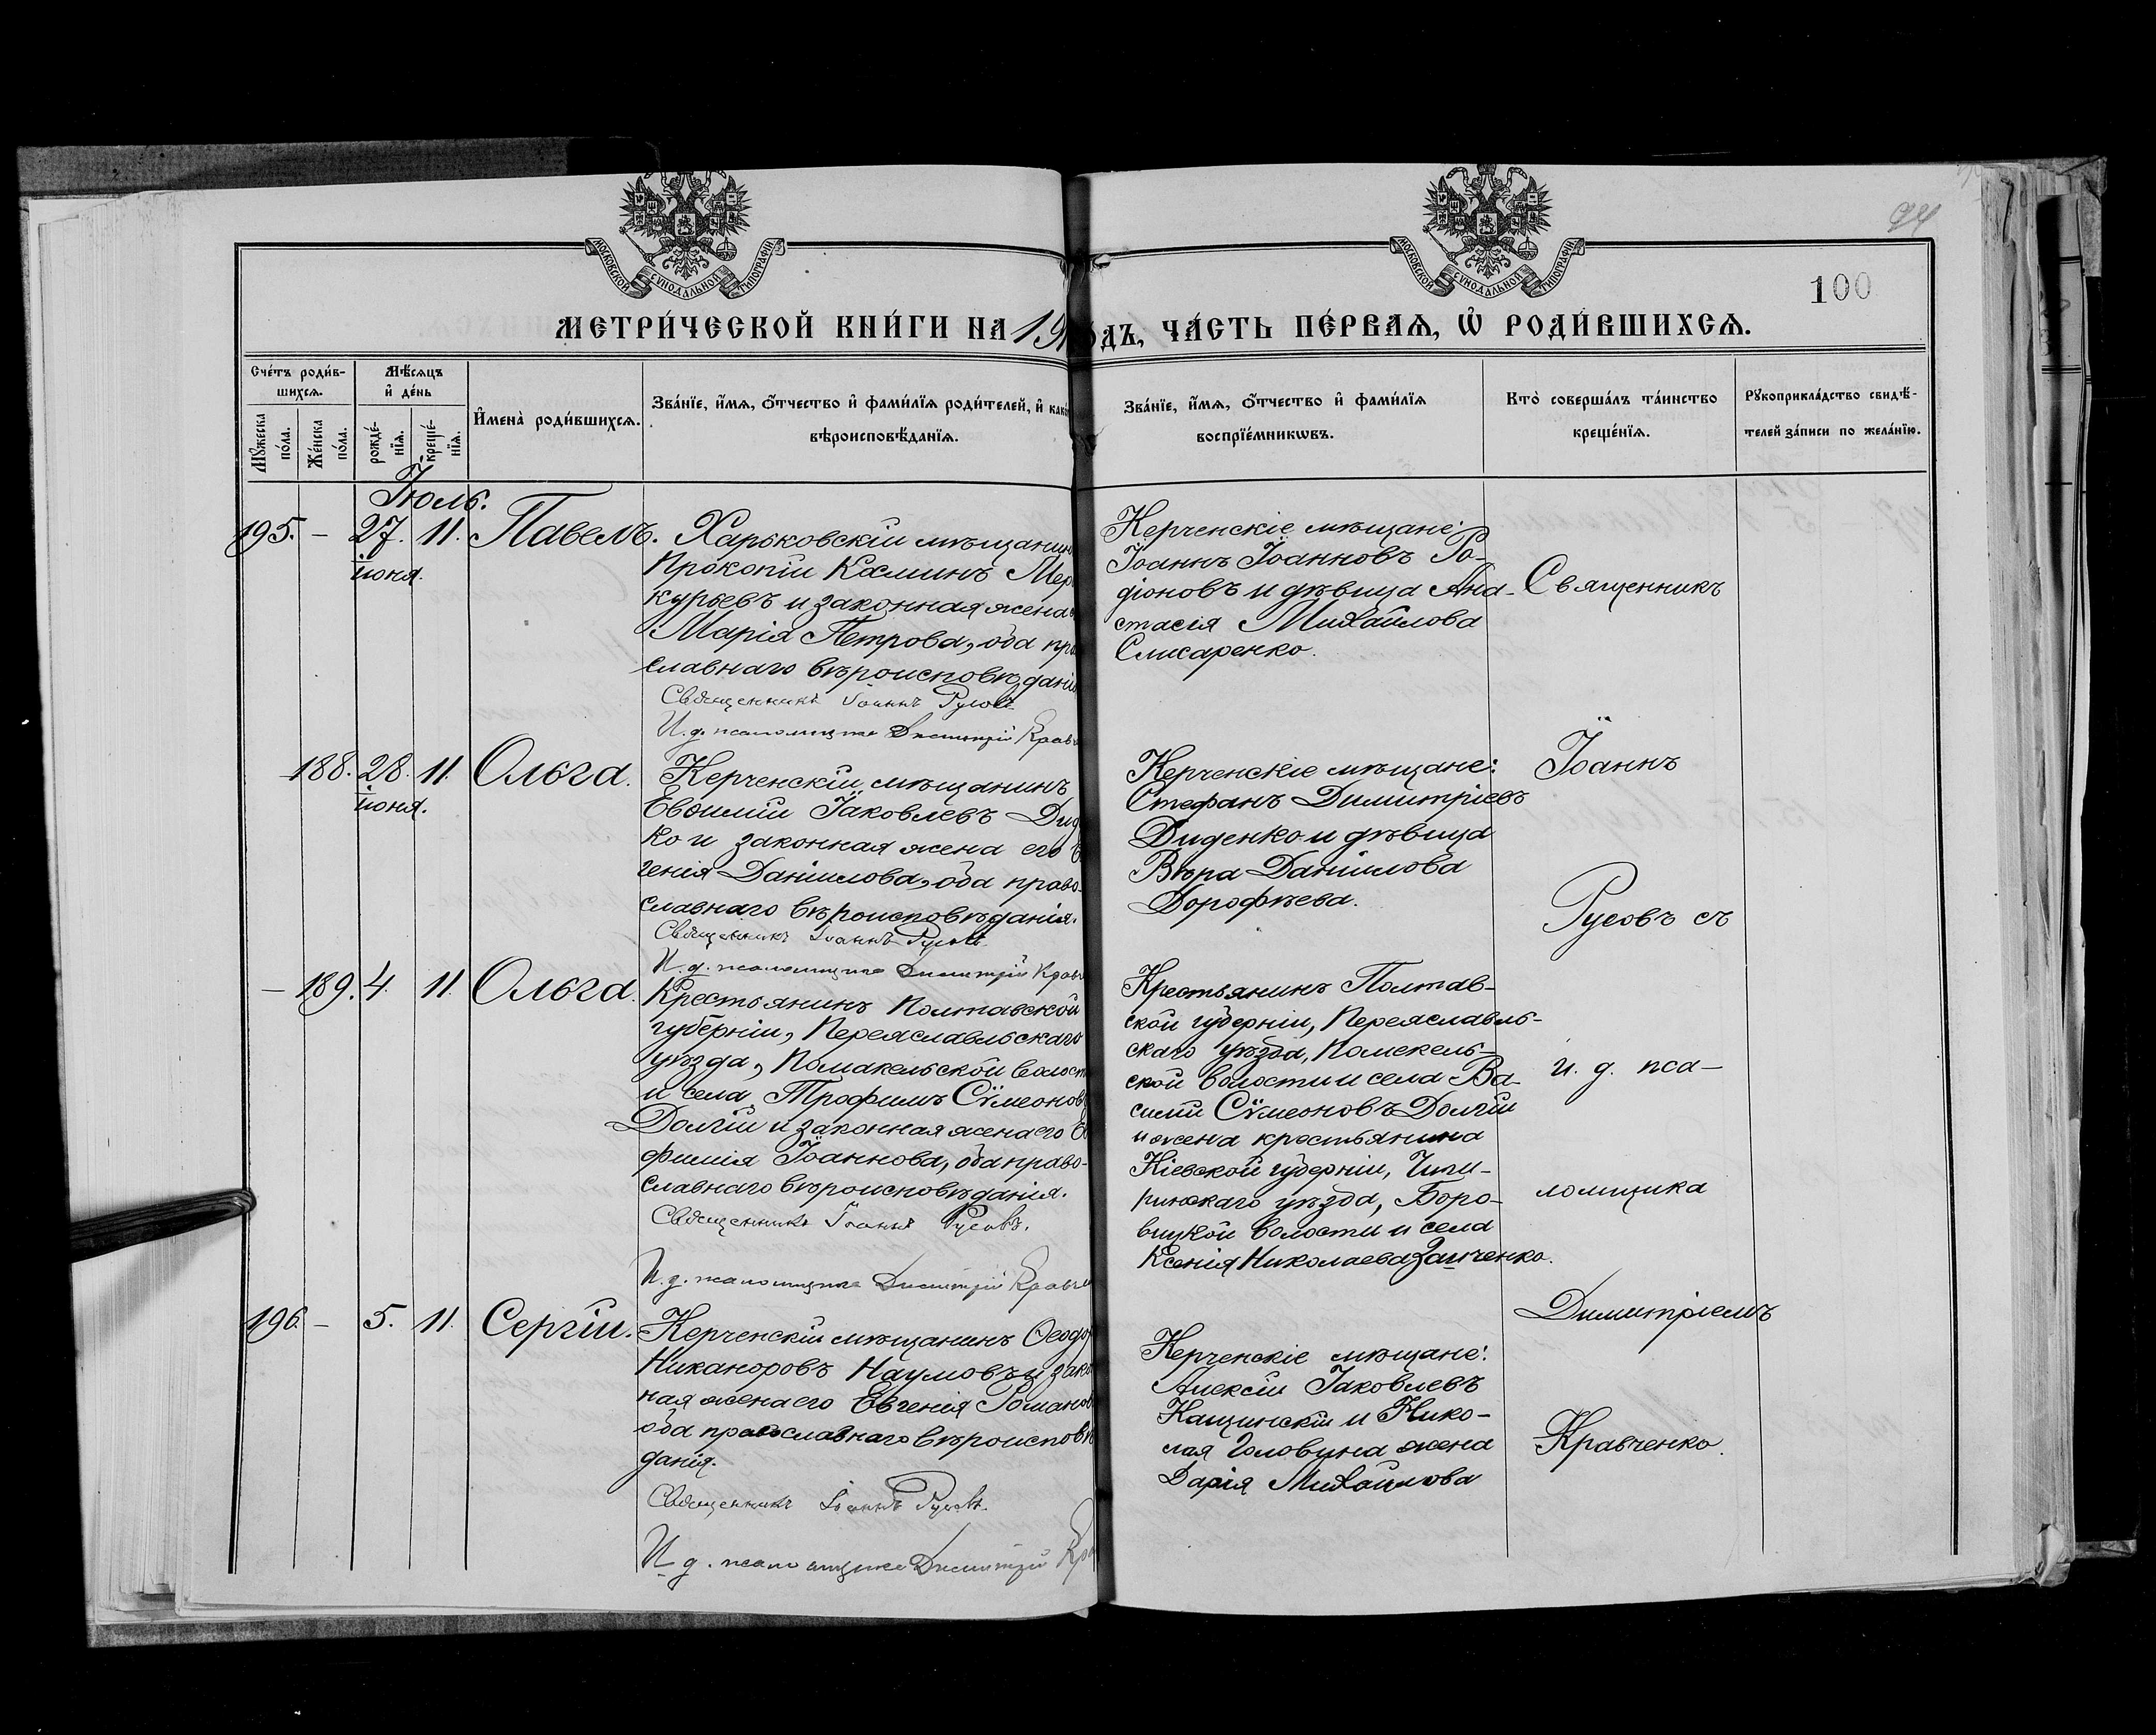 МОСКОВСКОЙ СУНОДАЛЬНОЙ ТИПОГРАФІИ
МОСКОВСКОЙ СУНОДАЛЬНОЙ ТИПОГРАФІИ
94
100
МЕТРИ́ЧЕСКОЙ КНИ́ГИ НА 19 ДЪ, ЧА́СТЬ ПЕ́РВАѦ, Ѡ҆ РОДИ́ВШИХСѦ.
Сче́тъ роди́в-
шихсѧ.
Мѣ́сѧцъ
и҆ де́нь
И҆мена̀ роди́вшихсѧ.
Зва́нїе, и҆́мѧ, ѻ҆́тчество и҆ фами́лїѧ роди́телей, и҆ како́
вѣроисповѣ́данїѧ.
Мꙋ́жеска
по́ла.
Же́нска
по́ла.
рожде́-
нїѧ.
креще́-
нїѧ.
Зва́нїе, и҆́мѧ, ѻ҆́тчество и҆ фами́лїѧ
воспрїе́мникѡвъ.
Кто̀ соверша́лъ та́инство
креще́нїѧ.
Рꙋкоприкла́дство свидѣ́-
телей за́писи по жела́нїю.
Іюль.
195. – 27. 11. Павелъ. Харьковскій мѣщанинъ
іюня.
Прокопій Калминъ Мер
курьевъ и законная жена
Марія Петрова, оба пра
славнаго вѣроисповѣданія
Священникъ Іоаннъ Русовъ
И. д. псаломщика Димитрій Кравч
Керченскіе мѣщане:
Іоаннъ Іоанновъ Ро-
діоновъ и дѣвица Ана-
стасія Михайлова
Слисаренко.
Священникъ
188. 28. 11. Ольга. Керченскій мѣщанинъ
іюня.
Евѳимій Іаковлевъ Дид
ко и законная жена его Е
генія Даніилова, оба право-
славнаго вѣроисповѣданія.
Священникъ Іоаннъ Русовъ
И. д. псаломщика Димитрій Кравч
Керченскіе мѣщане:
Стефанъ Димитріевъ
Диденко и дѣвица
Вѣра Даніилова
Дорофѣева.
Іоаннъ
Русовъ съ
– 189. 4. 11. Ольга. Крестьянинъ Полтавской
губерніи, Переяславльскаго
уѣзда, Помакельской волост
и села Трофимъ Сѵмеоновъ
Долгій и законная жена его Е
фимія Іоаннова, оба право-
славнаго вѣроисповѣданія.
Священникъ Іоаннъ Русовъ.
И. д. псаломщика Димитрій Кравче
Крестьянинъ Полтав-
ской губерніи, Переяславль-
скаго уѣзда, Помекель-
ской волости и села Ва-
силій Сѵмеоновъ Долгій
и жена крестьянина
Кіевской губерніи, Чиги-
ринскаго уѣзда, Боро-
вицкой волости и села
Ксенія Николаева Заиченко.
и. д. пса-
ломщика
196. – 5. 11. Сергій. Керченскій мѣщанинъ Ѳеодо
Никаноровъ Наумовъ и зако
ная жена его Евгенія Романов
оба православнаго вѣроисповѣ
данія.
Священникъ Іоаннъ Русовъ.
И. д. псаломщика Димитрій Кра
Керченскіе мѣщане:
Алексій Іаковлевъ
Кащинскій и Нико-
лая Головина жена
Дарія Михайлова
Димитріемъ
Кравченко.